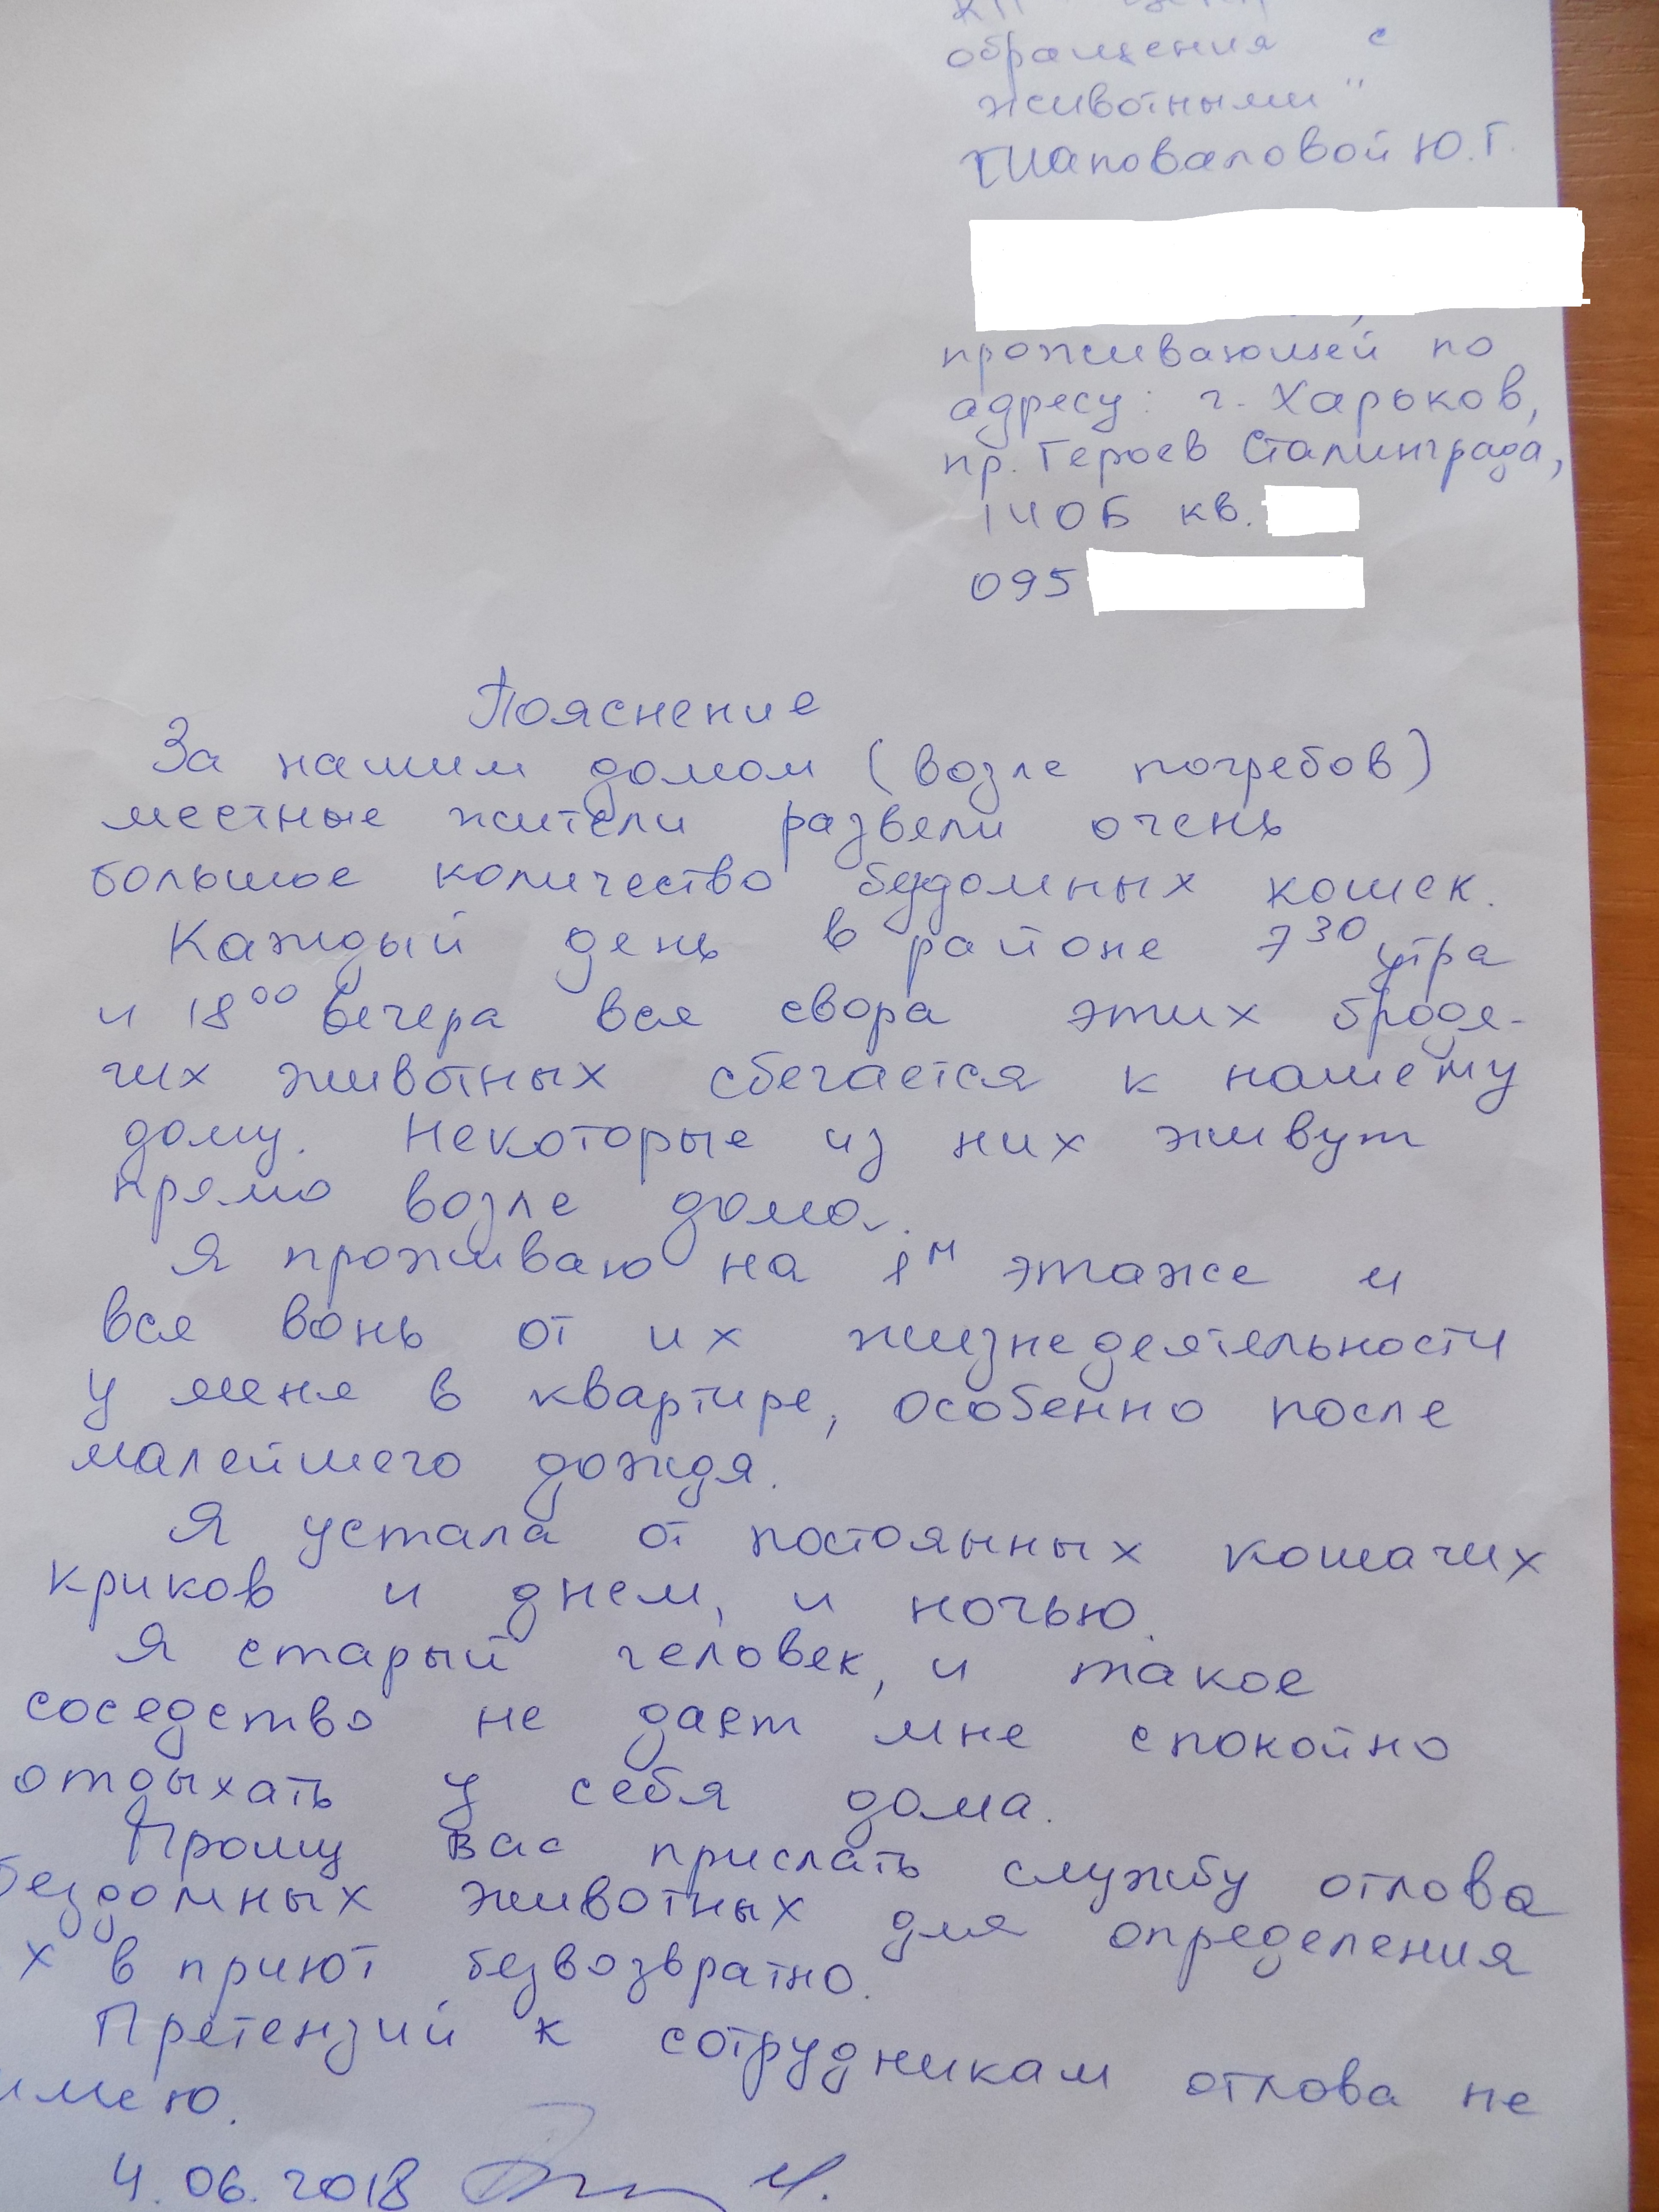 КП
обращения с
животными"
Шаповаловой Ю.Г.
проживающей по
адресу: г. Харьков,
пр. Героев Сталинграда,
140Б кв.
095
Пояснение
За нашим домом (возле погребов)
местные жители развели очень
большое количество бездомных кошек.
Каждый день в районе 7³⁰ утра
и 18⁰⁰ вечера вся свора этих бродя-
чих животных сбегается к нашему
дому. Некоторые из них живут
прямо возле дома.
Я проживаю на 1ᴹ этаже и
вся вонь от их жизнедеятельности
у меня в квартире, особенно после
малейшего дождя.
Я устала от постоянных кошачих
криков и днем, и ночью.
Я старый человек, и такое
соседство не дает мне спокойно
отдыхать у себя дома.
Прошу вас прислать службу отлова
бездомных животных для определения
х в приют безвозвратно.
Претензий к сотрудникам отлова не
имею.
4.06.2018